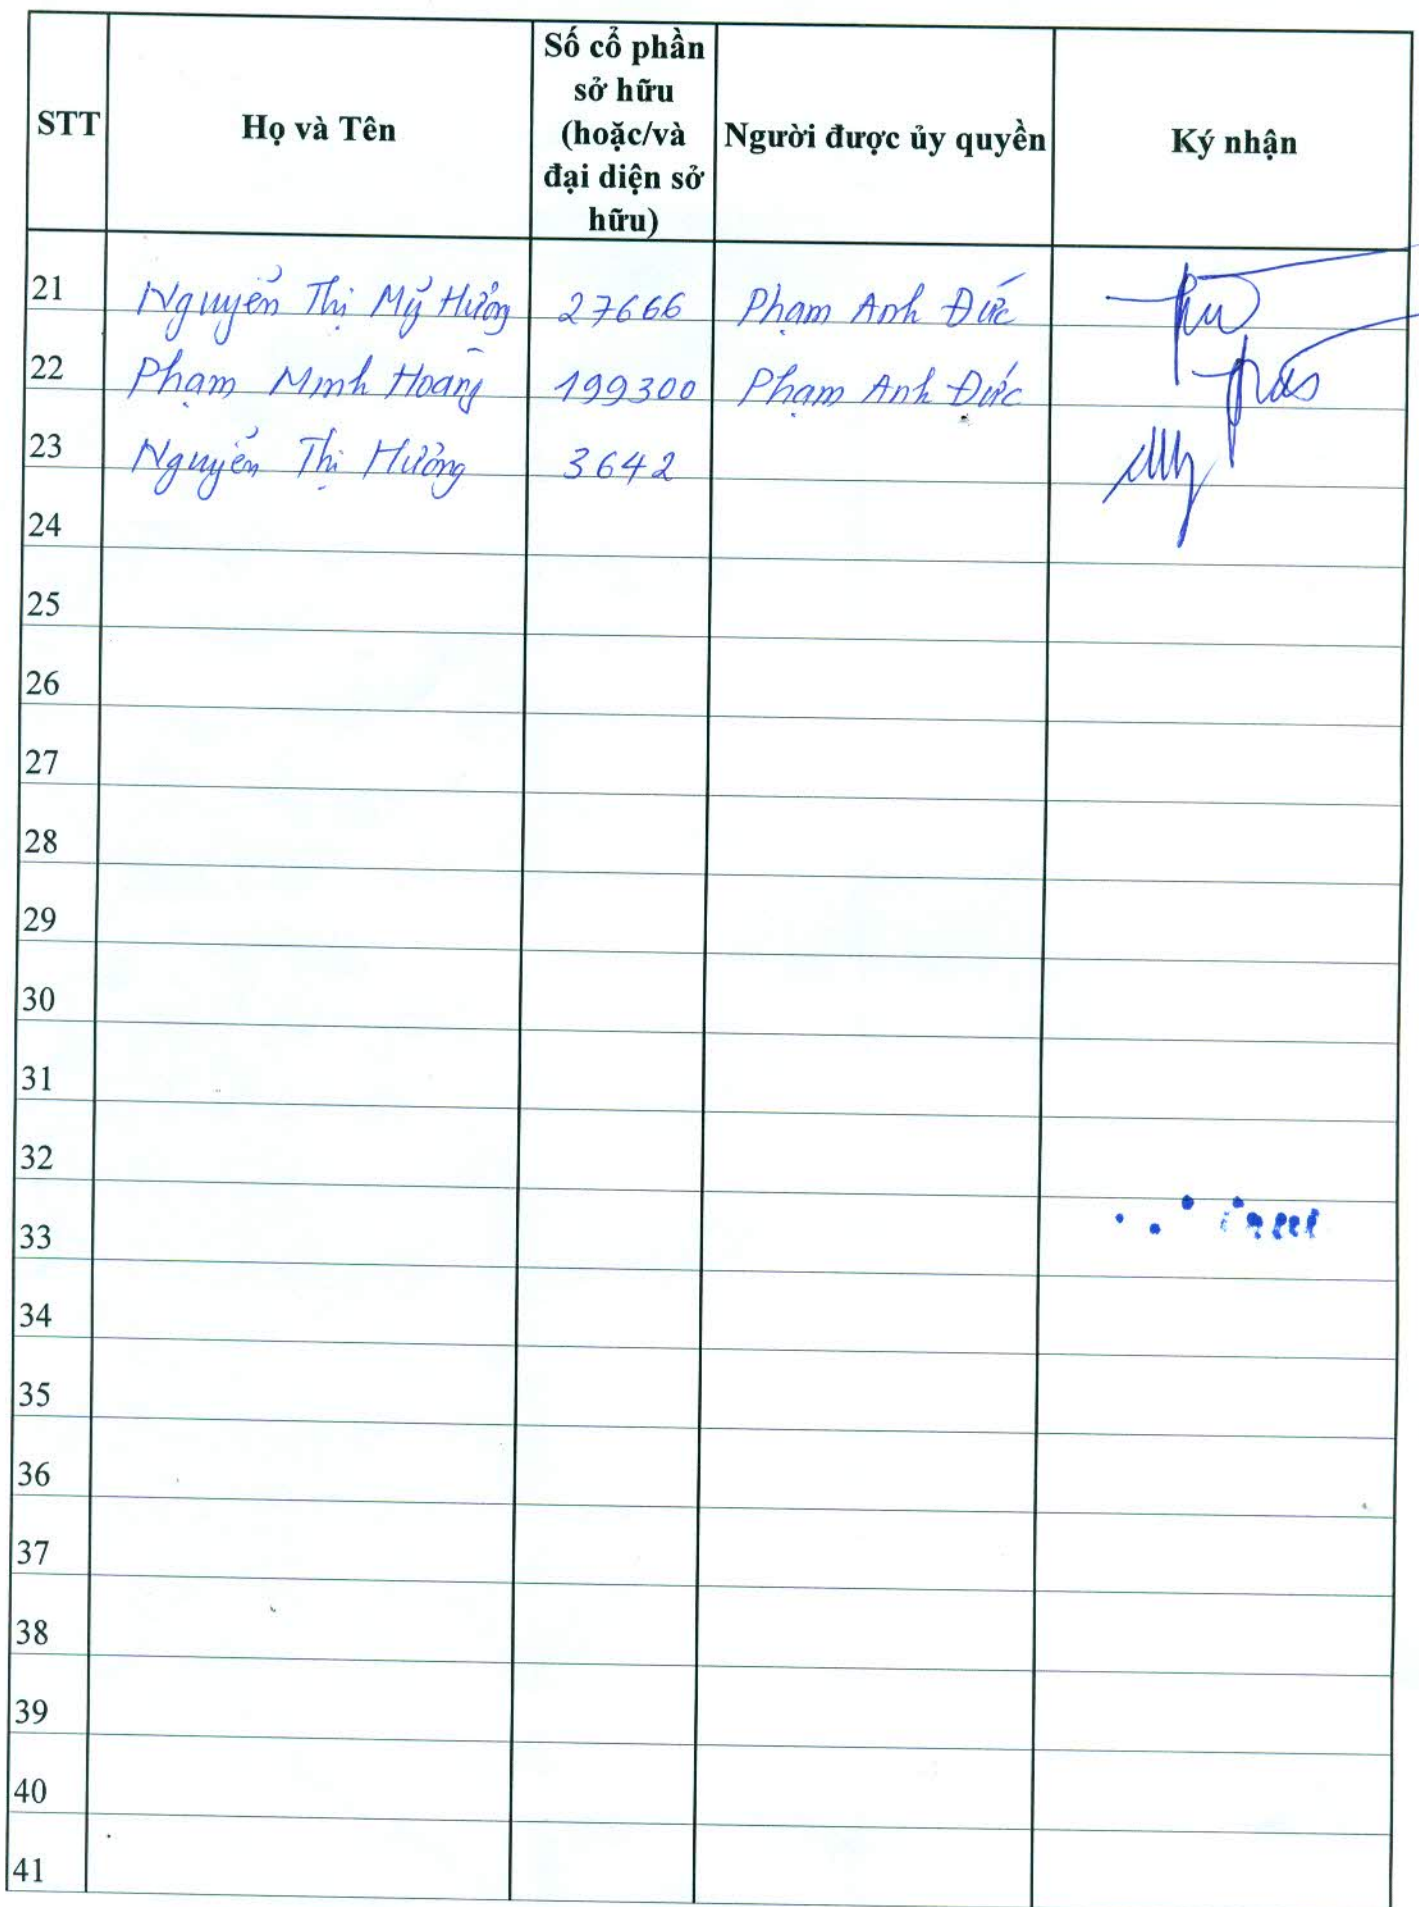 STT Họ và Tên Số cổ phần sở hữu (hoặc/và đại diện sở hữu) Người được ủy quyền Ký nhận
21 Nguyễn Thị Mỹ Hưởng 27666 Phạm Anh Đức
22 Phạm Minh Hoàng 199300 Phạm Anh Đức
23 Nguyễn Thị Hưởng 3642
24
25
26
27
28
29
30
31
32
33
34
35
36
37
38
39
40
41